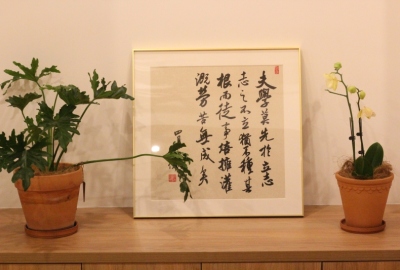 夫學莫先於立志
志之不立猶不種其
根而徒事培擁灌
溉勞苦無成矣